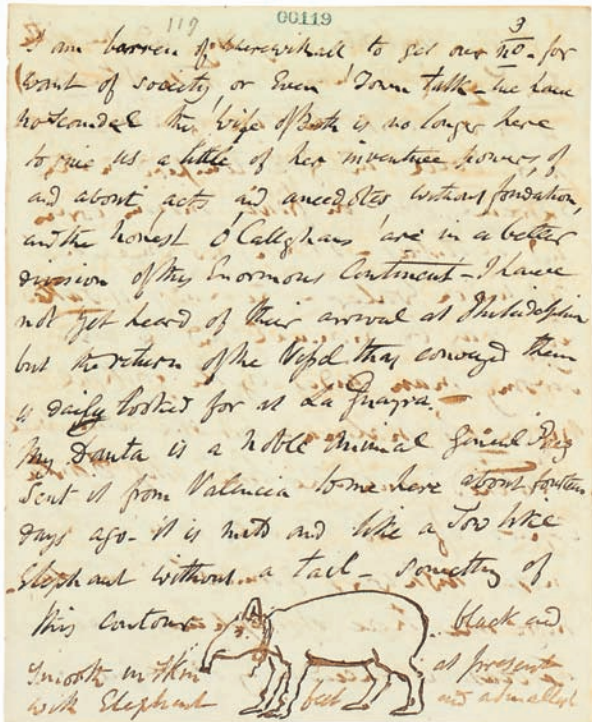 119
00119
3
I am barren of wherewithall to get over no. for
want of society or Even 'Town talk - we have
no scandal the 'Wife of Bath is no longer here
to give us a little of her inventive powers, of
and about acts and anecdotes without fondation,
and the honest O'Callaghans are in a better
division of this Enormous Continent - I have
not yet heard of their arrival at Philadelphia
but the return of the Vessel that conveyed them
is daily looked for at La Guayra. -
My Danta is a noble animal General Paez
Sent it from Valencia to me here about fourteen
days ago - it is and like a Tow like
Elephant without a tail - something of
this contour black and
Smooth in Skin at present
with Elephant feet and a smallest